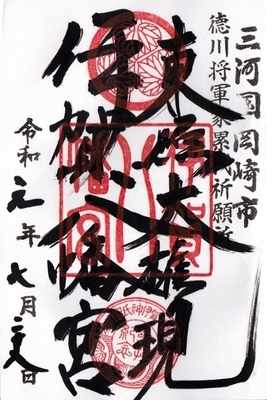 三河国岡崎市
徳川将軍家累代祈願所
東照大権現
伊賀八幡宮
令和元年七月二十八日